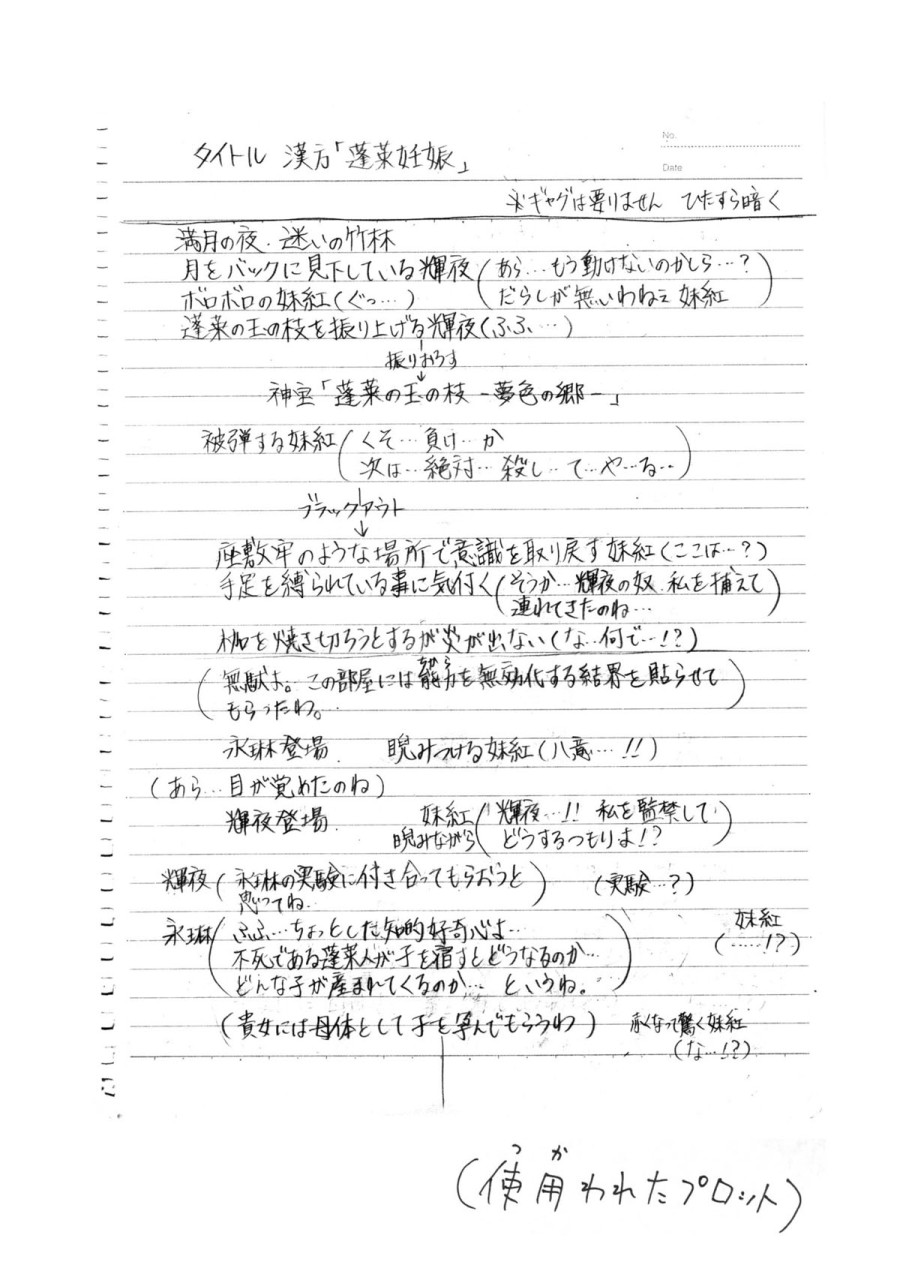 No.
Date
タイトル 漢方「蓬莱妊娠」
※ギャグは要りません ひたすら暗く
満月の夜・迷いの竹林
月をバックに見下している輝夜(あら…もう動けないのかしら…?
だらしが無いわねぇ 妹紅)
ボロボロの妹紅(ぐっ…)
蓬莱の玉の枝を振り上げる輝夜(ふふ…)
振りおろす
神宝「蓬莱の玉の枝 -夢色の郷-」
被弾する妹紅(くそ…負け…か
次は…絶対…殺し…て…や…る…)
ブラックアウト
座敷牢のような場所で意識を取り戻す妹紅(ここは…?)
手足を縛られている事に気付く(そうか…輝夜の奴、私を捕えて
連れてきたのね…)
枷を焼き切ろうとするが炎が出ない(な…何で…!?)
(無駄よ。この部屋には能力を無効化する結界を貼らせて
もらったわ。)
永琳登場 睨みつける妹紅(八意…!!)
(あら…目が覚めたのね)
輝夜登場 妹紅 睨みながら(輝夜…!! 私を監禁して
どうするつもりよ!?)
輝夜(永琳の実験に付き合ってもらおうと
思ってね…) (実験…?)
永琳(ふふ…ちょっとした知的好奇心よ…
不死である蓬莱人が子を宿すとどうなるのか…
どんな子が産まれてくるのか… というね。) 妹紅(……!?)
(貴女には母体として子を孕んでもらうわ) 赤くなって驚く妹紅
(な…!?)
つか
(使用われたプロット)